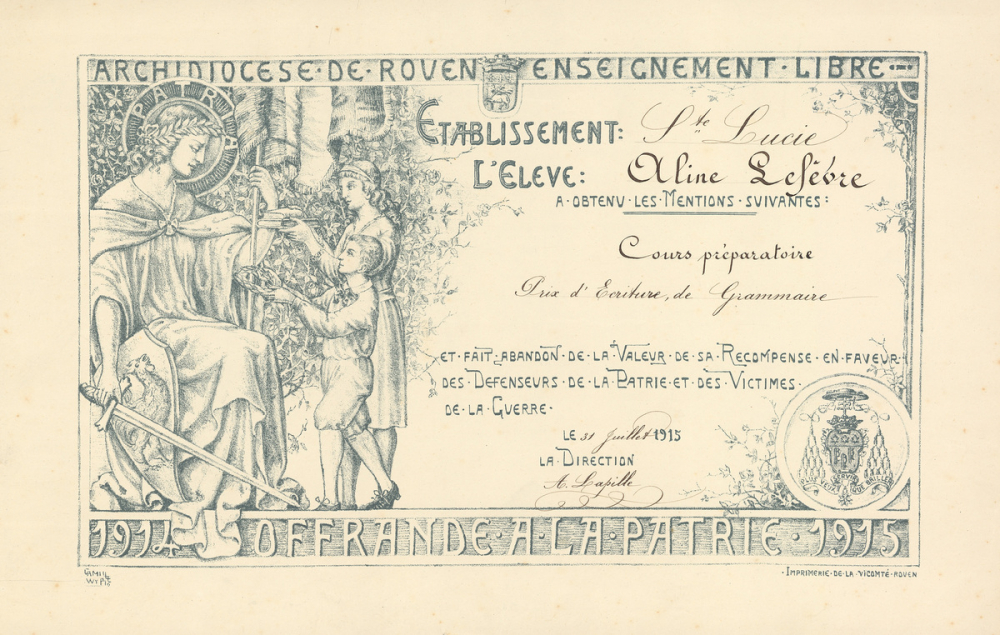 ARCHIDIOCESE·DE·ROUEN ENSEIGNEMENT·LIBRE
PATRIA
ETABLISSEMENT: Ste Lucie
L'ELEVE: Aline Lefèvre
A·OBTENU·LES·MENTIONS·SUIVANTES:
Cours préparatoire
Prix d'Ecriture, de Grammaire
ET·FAIT·ABANDON·DE·LA·VALEUR·DE·SA·RECOMPENSE·EN·FAVEUR
DES·DEFENSEURS·DE·LA·PATRIE·ET·DES·VICTIMES·
DE·LA·GUERRE·
LE 31 Juillet 1915
LA·DIRECTION
A. Lapille
1914 OFFRANDE·A·LA·PATRIE·1915
·IMPRIMERIE·DE·LA·VICOMTÉ·ROUEN